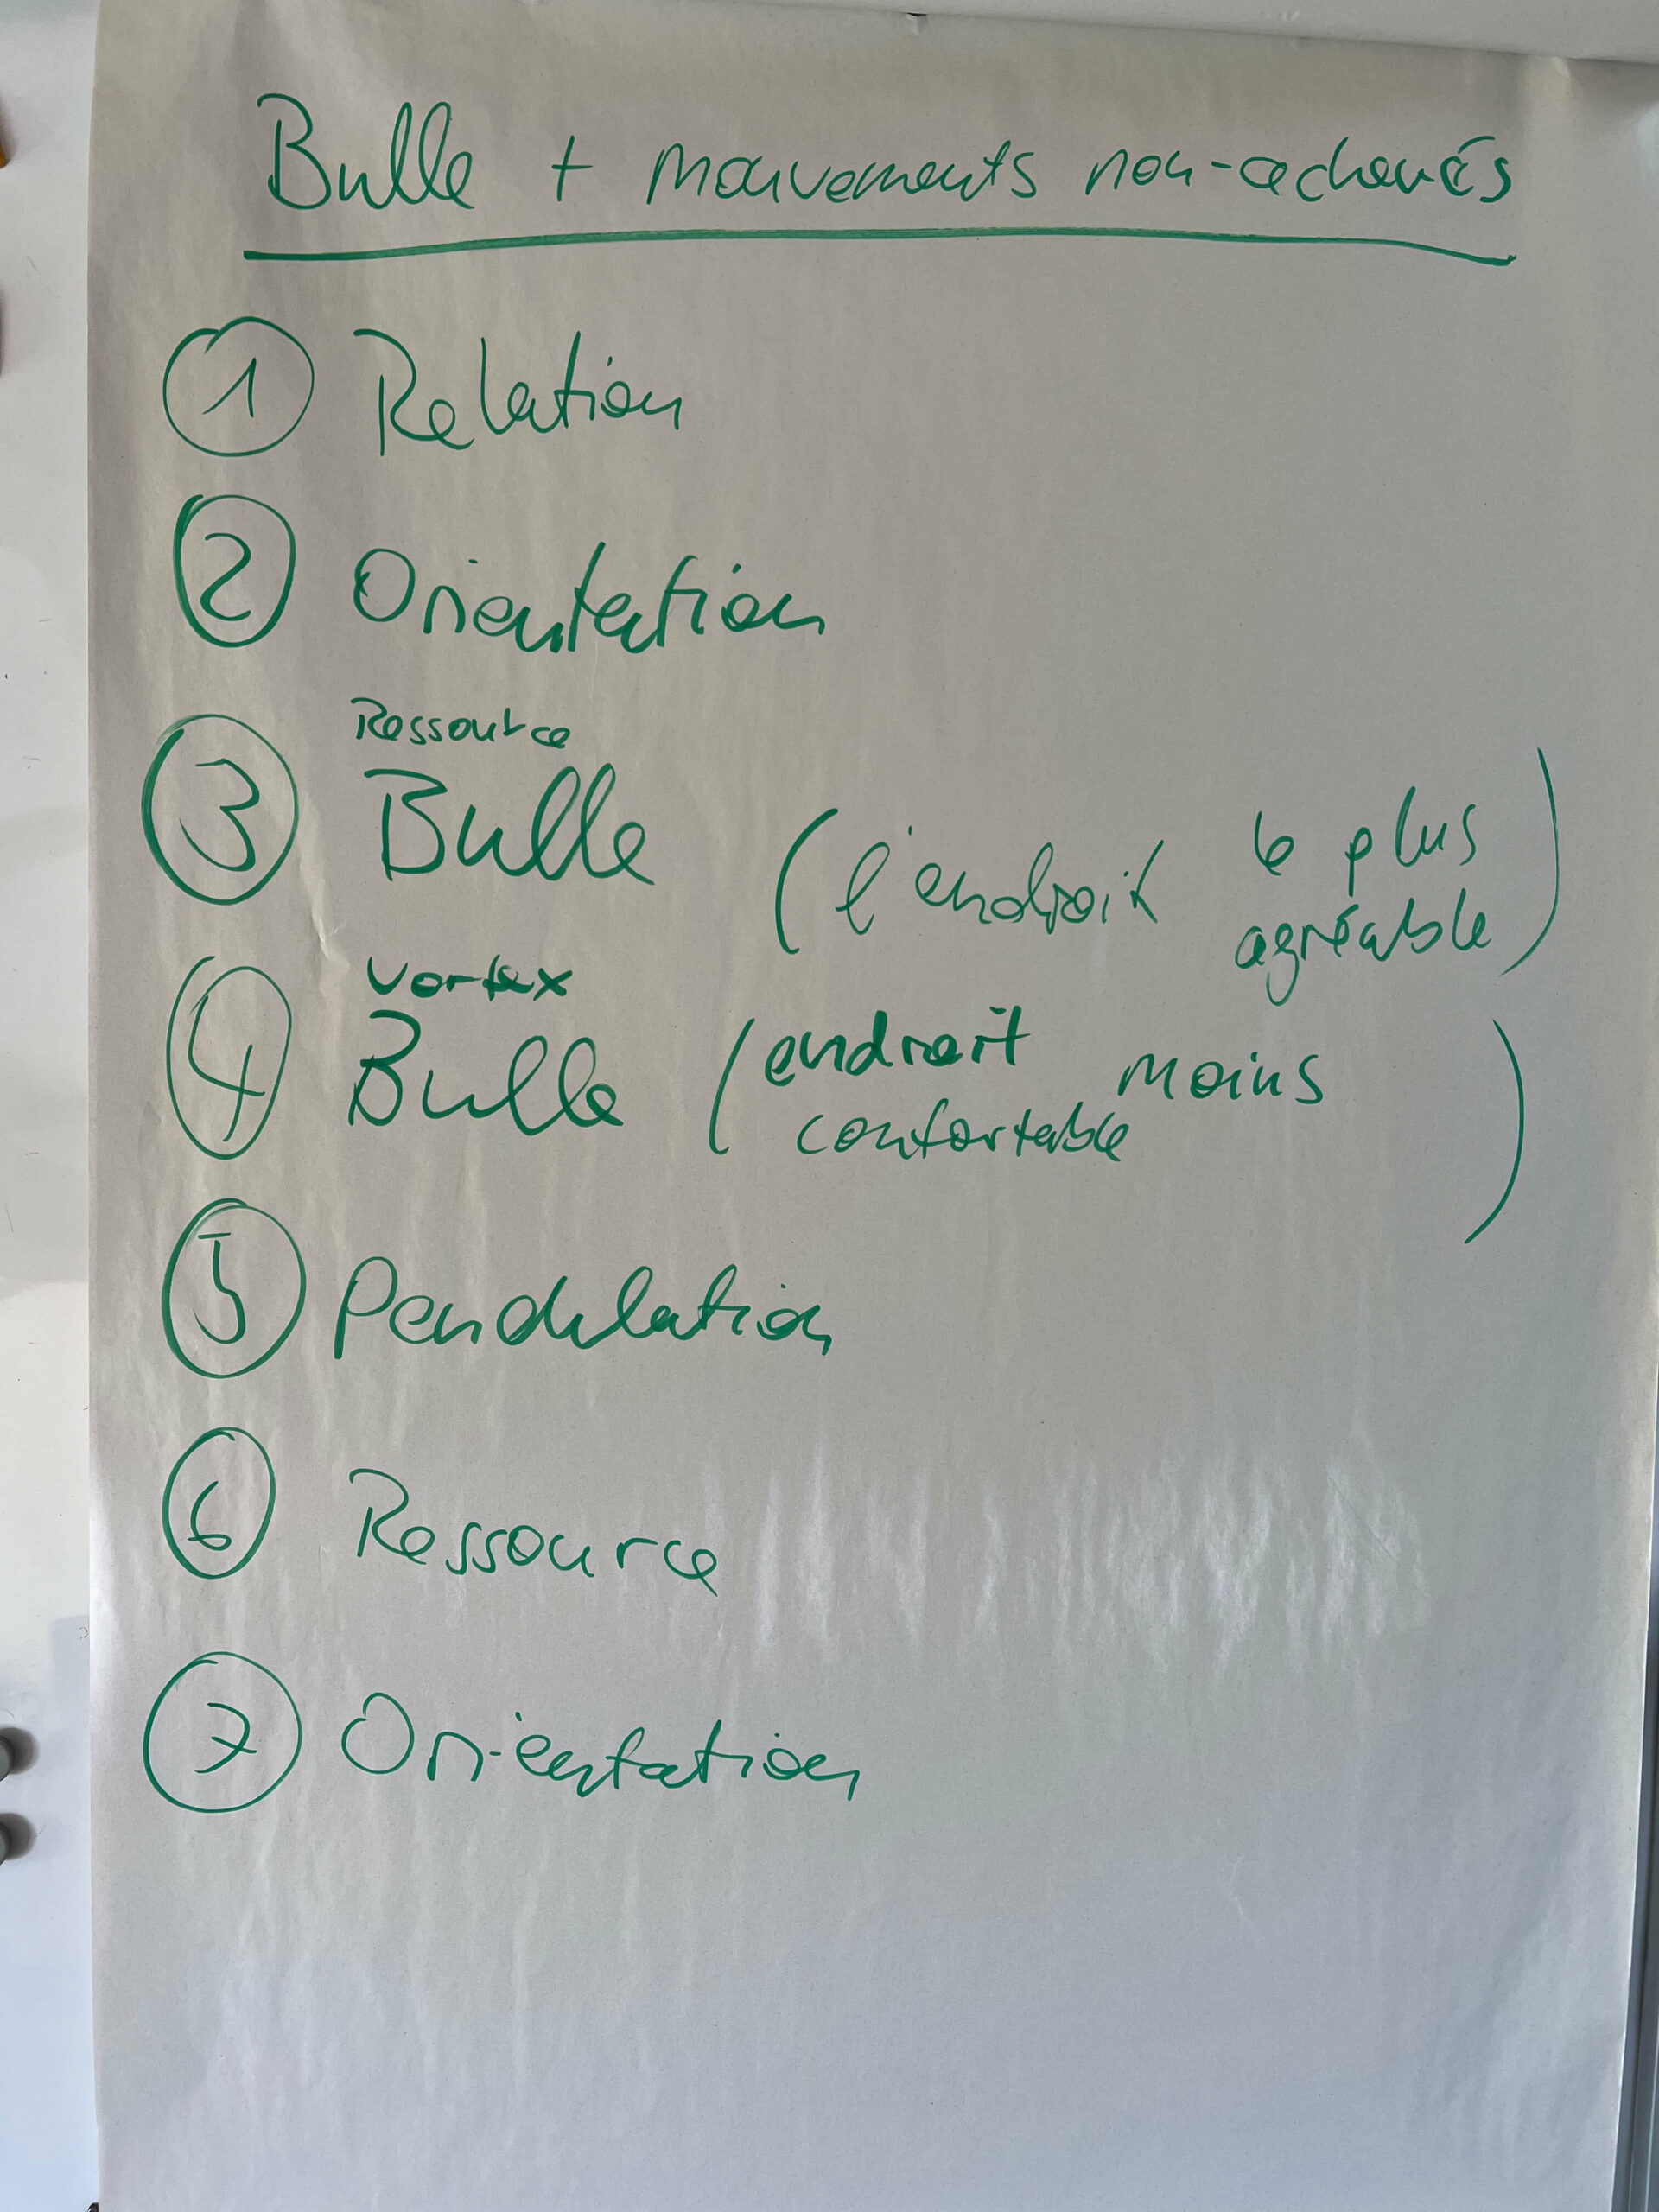 Bulle + mouvements non-achevés
① Relation
② Orientation
Ressource
③ Bulle (l'endroit le plus
agréable)
Vortex
④ Bulle (endroit moins
confortable)
⑤ Pendulation
⑥ Ressource
⑦ Orientation